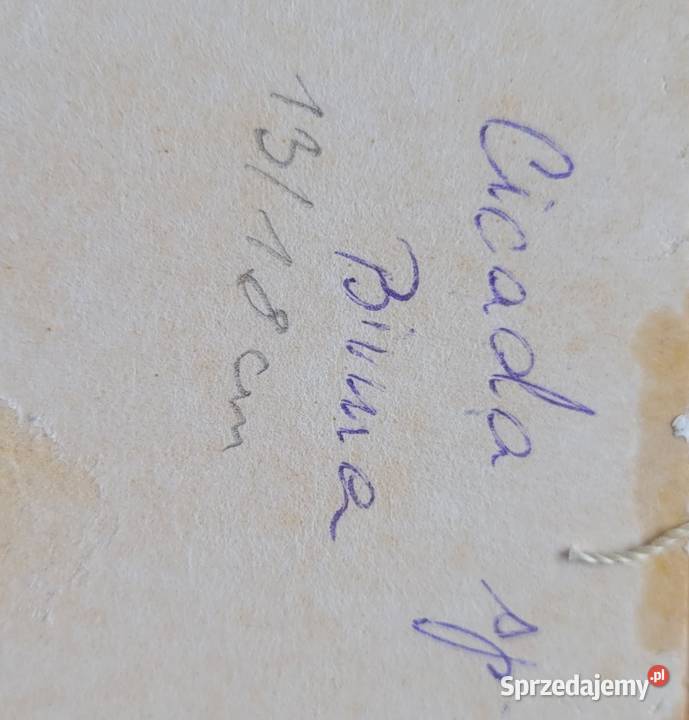 Cicada sp.
Birma
13/18 cm
Sprzedajemy.pl